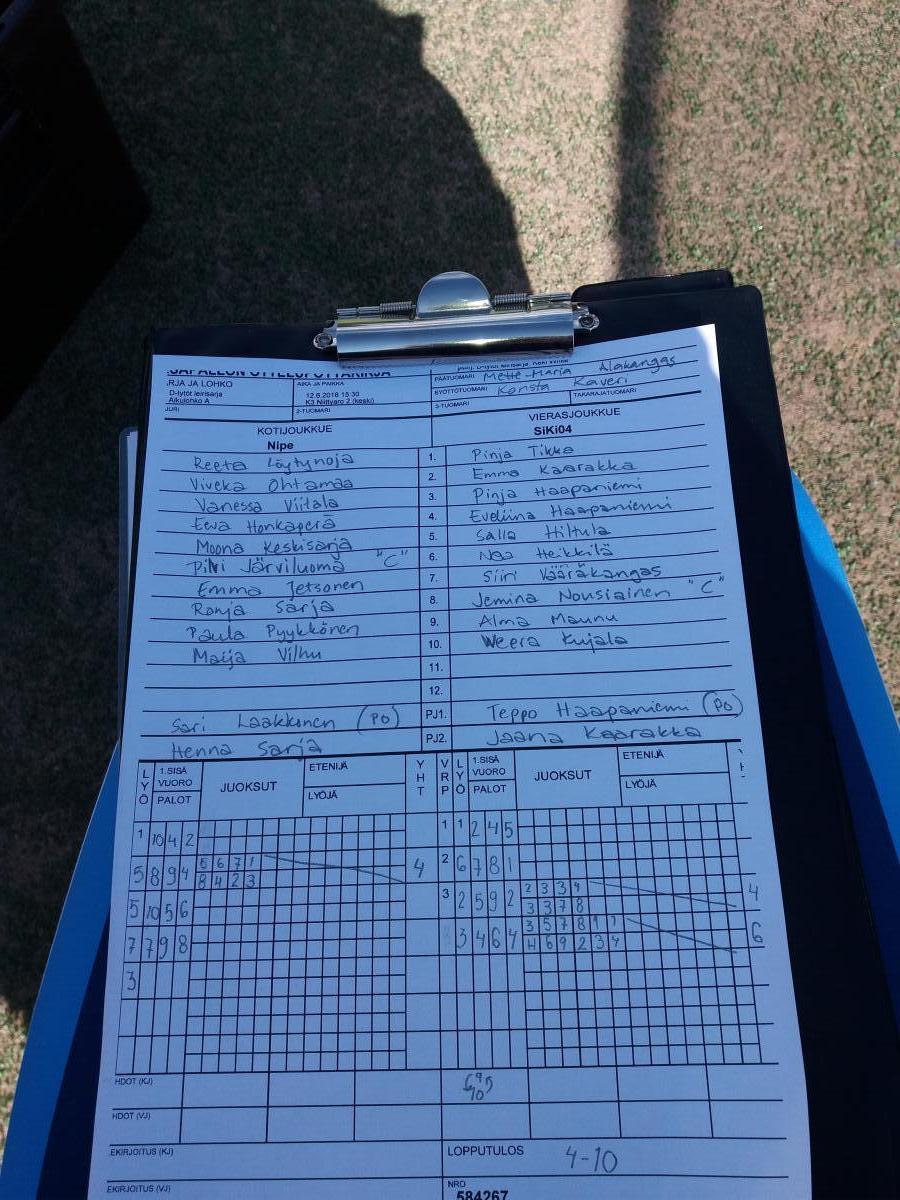 RJA JA LOHKO
D-tytöt leirisarja
Alkulohko A
JURI
AIKA JA PAIKKA
12.6.2018 15:30
K3 Niittyaro 2 (keski)
2-TUOMARI
PÄÄTUOMARI Mette-Maria Alakangas
SYÖTTÖTUOMARI Konsta Kaveri
3-TUOMARI TAKARAJATUOMARI
KOTIJOUKKUE VIERASJOUKKUE
Nipe SiKi04
Reeta Löytynoja 1. Pinja Tikka
Viveka Ohtamaa 2. Emma Kaarakka
Vanessa Viitala 3. Pinja Haapaniemi
Eeva Honkaperä 4. Eveliina Haapaniemi
Moona Keskisarja 5. Salla Hiltula
Pilvi Järviluoma "C" 6. Noa Heikkilä
Emma Jetsonen 7. Siiri Vääräkangas
Ronja Sarja 8. Jemina Nousiainen "C"
Paula Pyykkönen 9. Alma Maunu
Maija Vilhu 10. Weera Kujala
11.
12.
Sari Laakkonen (PO) PJ1. Teppo Haapaniemi (PO)
Henna Sarja PJ2. Jaana Kaarakka
LYÖ 1.SISÄ VUORO PALOT JUOKSUT ETENIJÄ LYÖJÄ YHT VRP LYÖ 1.SISÄ VUORO PALOT JUOKSUT ETENIJÄ LYÖJÄ
1 10 4 2 1 1 2 4 5
5 8 9 4 5 6 7 1 4 2 6 7 8 1
8 4 2 3
5 10 5 6 3 2 5 9 2 2 3 3 4 4
3 3 7 8
7 7 9 8 3 4 6 4 3 5 7 8 1 1 6
4 6 9 2 3 4
3
HDOT (KJ)
HDOT (VJ)
EKIRJOITUS (KJ) LOPPUTULOS 4-10
EKIRJOITUS (VJ) NRO
584267